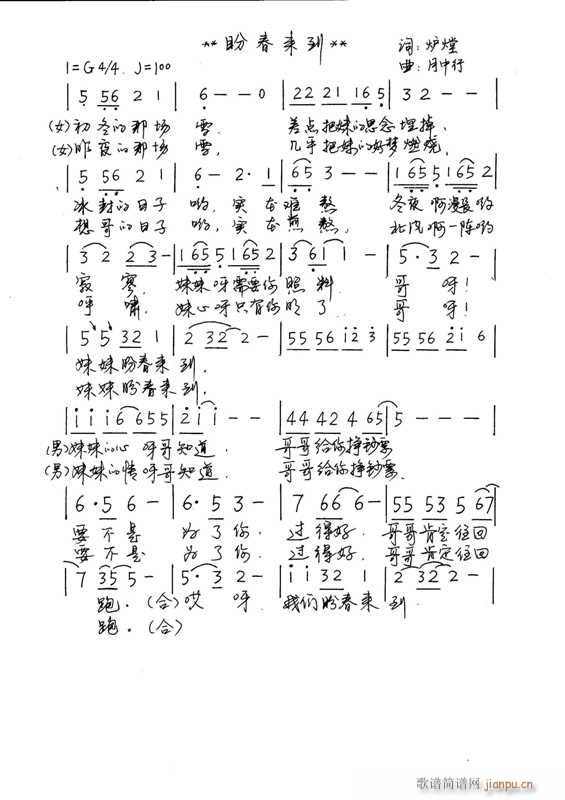 **盼春来到**
词:炉膛
1=G 4/4 ♩=100
曲:月中行
| 5 56 2 1 | 6 - - 0 | 22 21 16 5 | 3 2 - - |
(女)初冬的那场 雪. 差点把妹的思念埋掉.
(女)昨夜的那场 雪, 几乎把妹的好梦燃烧.
| 5 56 2 1 | 6 - 2· 1 | 165 3 - - | 165 165 2 |
冰封的日子 哟, 实在难熬 冬夜啊漫长哟
想哥的日子 哟, 实在煎熬, 北风啊一阵哟
| 3 2 2 3 - | 165 5 165 2 | 3 61 1 - | 5· 3 2 - |
寂寞. 妹妹呀需要你照料 哥 呀!
呼啸. 妹心呀只有你明了 哥 呀!
| 5 5 32 1 | 2 32 2 - | 55 56 i2 3 | 55 56 2i 6 |
妹妹盼春来到.
妹妹盼春来到.
| i i i6 655 | 2i i - - | 44 42 4 65 | 5 - - - |
(男)妹妹的心 呀哥知道. 哥哥给你挣钞票
(男)妹妹的情 呀哥知道. 哥哥给你挣钞票.
| 6· 5 6 - | 6· 5 3 - | 7 66 6 - | 55 53 5 67 |
要不是 为了你. 过得好. 哥哥肯定往回
要不是 为了你. 过得好. 哥哥肯定往回
| 7 35 5 - | 5· 3 2 - | i i 32 1 | 2 32 2 - |
跑. (合)哎 呀. 我们盼春来到.
跑. (合)
歌谱简谱网
jianpu.cn